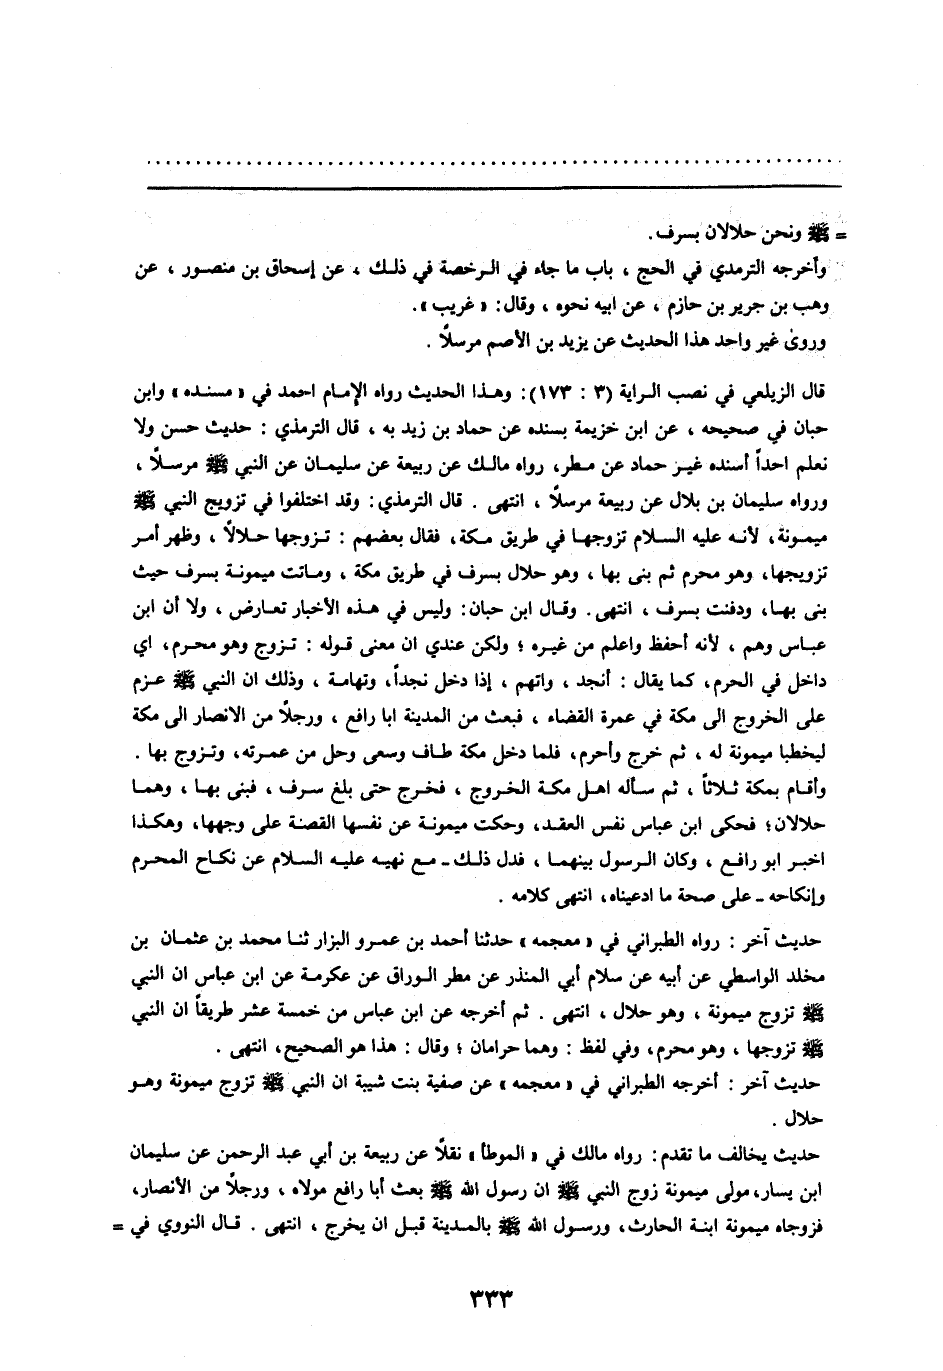 = ﷺ ونحن حلالان بسرف.
وأخرجه الترمدي في الحج ، باب ما جاء في الرخصة في ذلك ، عن إسحاق بن منصور ، عن
وهب بن جرير بن حازم ، عن ابيه نحوه ، وقال: « غريب ».
وروىٰ غير واحد هذا الحديث عن يزيد بن الأصم مرسلاً .
قال الزيلعي في نصب الراية (٣ : ١٧٣): وهذا الحديث رواه الإمام احمد في « مسنده » وابن
حبان في صحيحه ، عن ابن خزيمة بسنده عن حماد بن زيد به ، قال الترمذي : حديث حسن ولا
نعلم احداً أسنده غير حماد عن مطر، رواه مالك عن ربيعة عن سليمان عن النبي ﷺ مرسلاً ،
ورواه سليمان بن بلال عن ربيعة مرسلاً ، انتهى . قال الترمذي: وقد اختلفوا في تزويج النبي ﷺ
ميمونة، لأنه عليه السلام تزوجها في طريق مكة، فقال بعضهم : تزوجها حلالاً ، وظهر أمر
تزويجها، وهو محرم ثم بنى بها ، وهو حلال بسرف في طريق مكة ، وماتت ميمونة بسرف حيث
بنى بها، ودفنت بسرف ، انتهى. وقال ابن حبان: وليس في هذه الأخبار تعارض ، ولا أن ابن
عباس وهم ، لأنه أحفظ واعلم من غيره ؛ ولكن عندي ان معنى قوله : تزوج وهو محرم، اي
داخل في الحرم، كما يقال : أنجد ، واتهم ، إذا دخل نجداً، وتهامة ، وذلك ان النبي ﷺ عزم
على الخروج الى مكة في عمرة القضاء ، فبعث من المدينة ابا رافع ، ورجلاً من الانصار الى مكة
ليخطبا ميمونة له ، ثم خرج وأحرم، فلما دخل مكة طاف وسعى وحل من عمرته، وتزوج بها .
وأقام بمكة ثلاثاً ، ثم سأله اهل مكة الخروج ، فخرج حتى بلغ سرف ، فبنى بها ، وهما
حلالان؛ فحكى ابن عباس نفس العقد، وحكت ميمونة عن نفسها القصة على وجهها، وهكذا
اخبر ابو رافع ، وكان الرسول بينهما ، فدل ذلك ـ مع نهيه عليه السلام عن نكاح المحرم
وإنكاحه ـ على صحة ما ادعيناه، انتهى كلامه .
حديث آخر : رواه الطبراني في « معجمه » حدثنا أحمد بن عمرو البزار ثنا محمد بن عثمان بن
مخلد الواسطي عن أبيه عن سلام أبي المنذر عن مطر الوراق عن عكرمة عن ابن عباس ان النبي
ﷺ تزوج ميمونة ، وهو حلال ، انتهى . ثم أخرجه عن ابن عباس من خمسة عشر طريقاً ان النبي
ﷺ تزوجها ، وهو محرم، وفي لفظ : وهما حرامان ؛ وقال : هذا هو الصحيح، انتهى .
حديث آخر : أخرجه الطبراني في « معجمه » عن صفية بنت شيبة ان النبي ﷺ تزوج ميمونة وهو
حلال .
حديث يخالف ما تقدم: رواه مالك في « الموطأ » نقلاً عن ربيعة بن أبي عبد الرحمن عن سليمان
ابن يسار، مولى ميمونة زوج النبي ﷺ ان رسول الله ﷺ بعث أبا رافع مولاه ، ورجلاً من الأنصار،
فزوجاه ميمونة ابنة الحارث، ورسول الله ﷺ بالمدينة قبل ان يخرج ، انتهى . قال النووي في =
٣٣٣